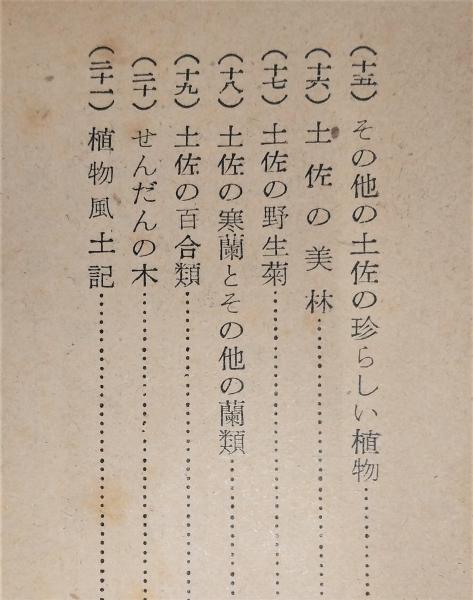 （十五）その他の土佐の珍らしい植物……………
（十六）土佐の美林……………
（十七）土佐の野生菊……………
（十八）土佐の寒蘭とその他の蘭類……………
（十九）土佐の百合類……………
（二十）せんだんの木……………
（二十一）植物風土記……………